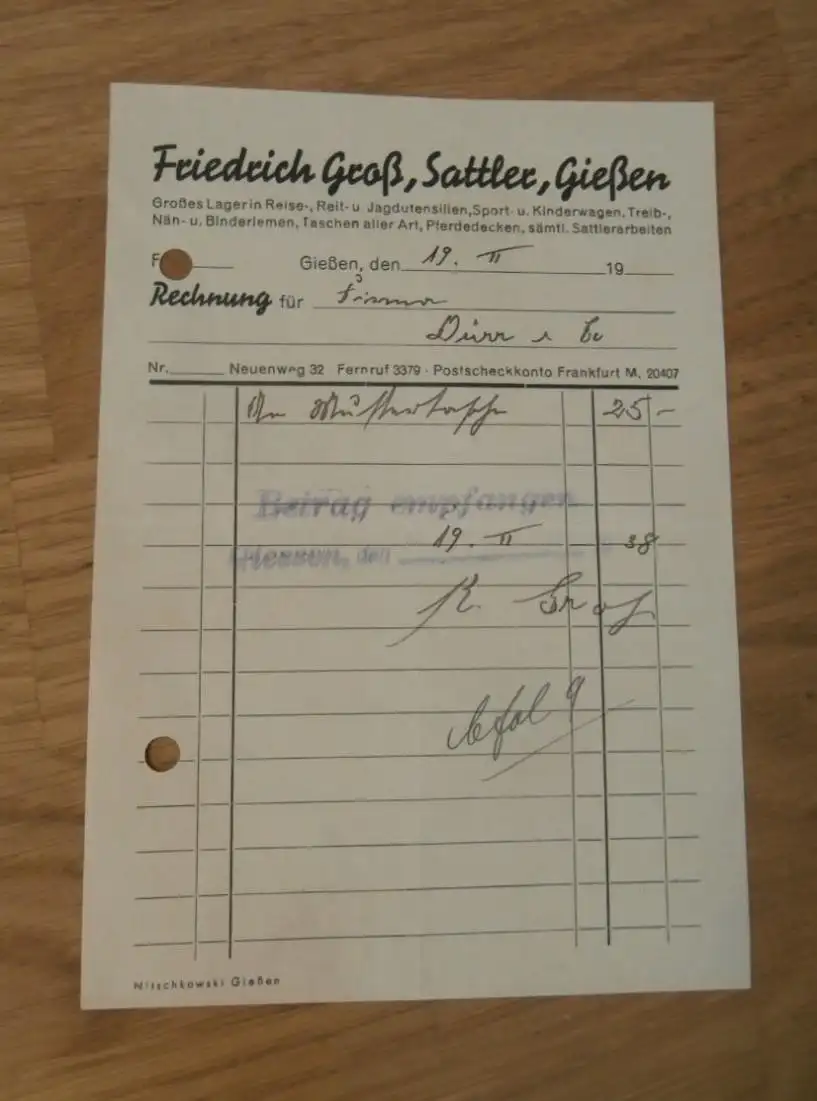 Friedrich Groß, Sattler, Gießen
Großes Lager in Reise-, Reit- u. Jagdutensilien, Sport- u. Kinderwagen, Treib-,
Näh- u. Binderiemen, Taschen aller Art, Pferdedecken, sämtl. Sattlerarbeiten
F
Gießen, den 19. II 19
Rechnung für Firma
Dürr & Co
Nr. Neuenweg 32 Fernruf 3379 · Postscheckkonto Frankfurt M. 20407
Mustertasche 25 -
Betrag empfangen
Giessen, den 19. II 38
Groß
Nitschkowski Gießen